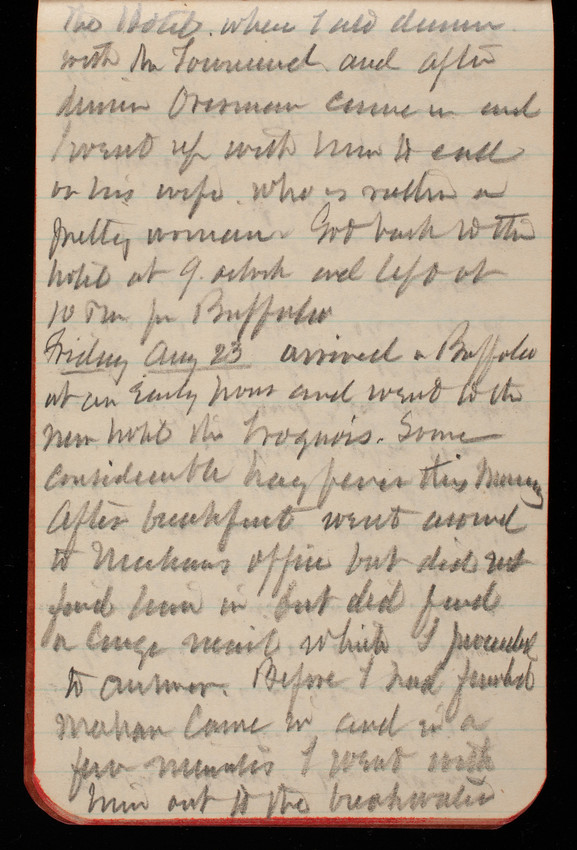 the Hotel. when I did dinner
with Mr Townsend and after
dinner Overman came in and
I went up with him to call
on his wife. who is rather a
pretty woman. Got back to the
hotel at 9. oclock and left at
10 Pm for Buffalo
Friday Aug 23 arrived a Buffalo
at an Early hour and went to the
new hotel the Iroquois. Some
considerable hay fever this morning
After breakfast went around
to Mahans office but did not
find him in but did find
a large mail which I proceeded
to answer. Before I had finished
Mahan came in and in a
few minutes I went with
him out to the breakwater